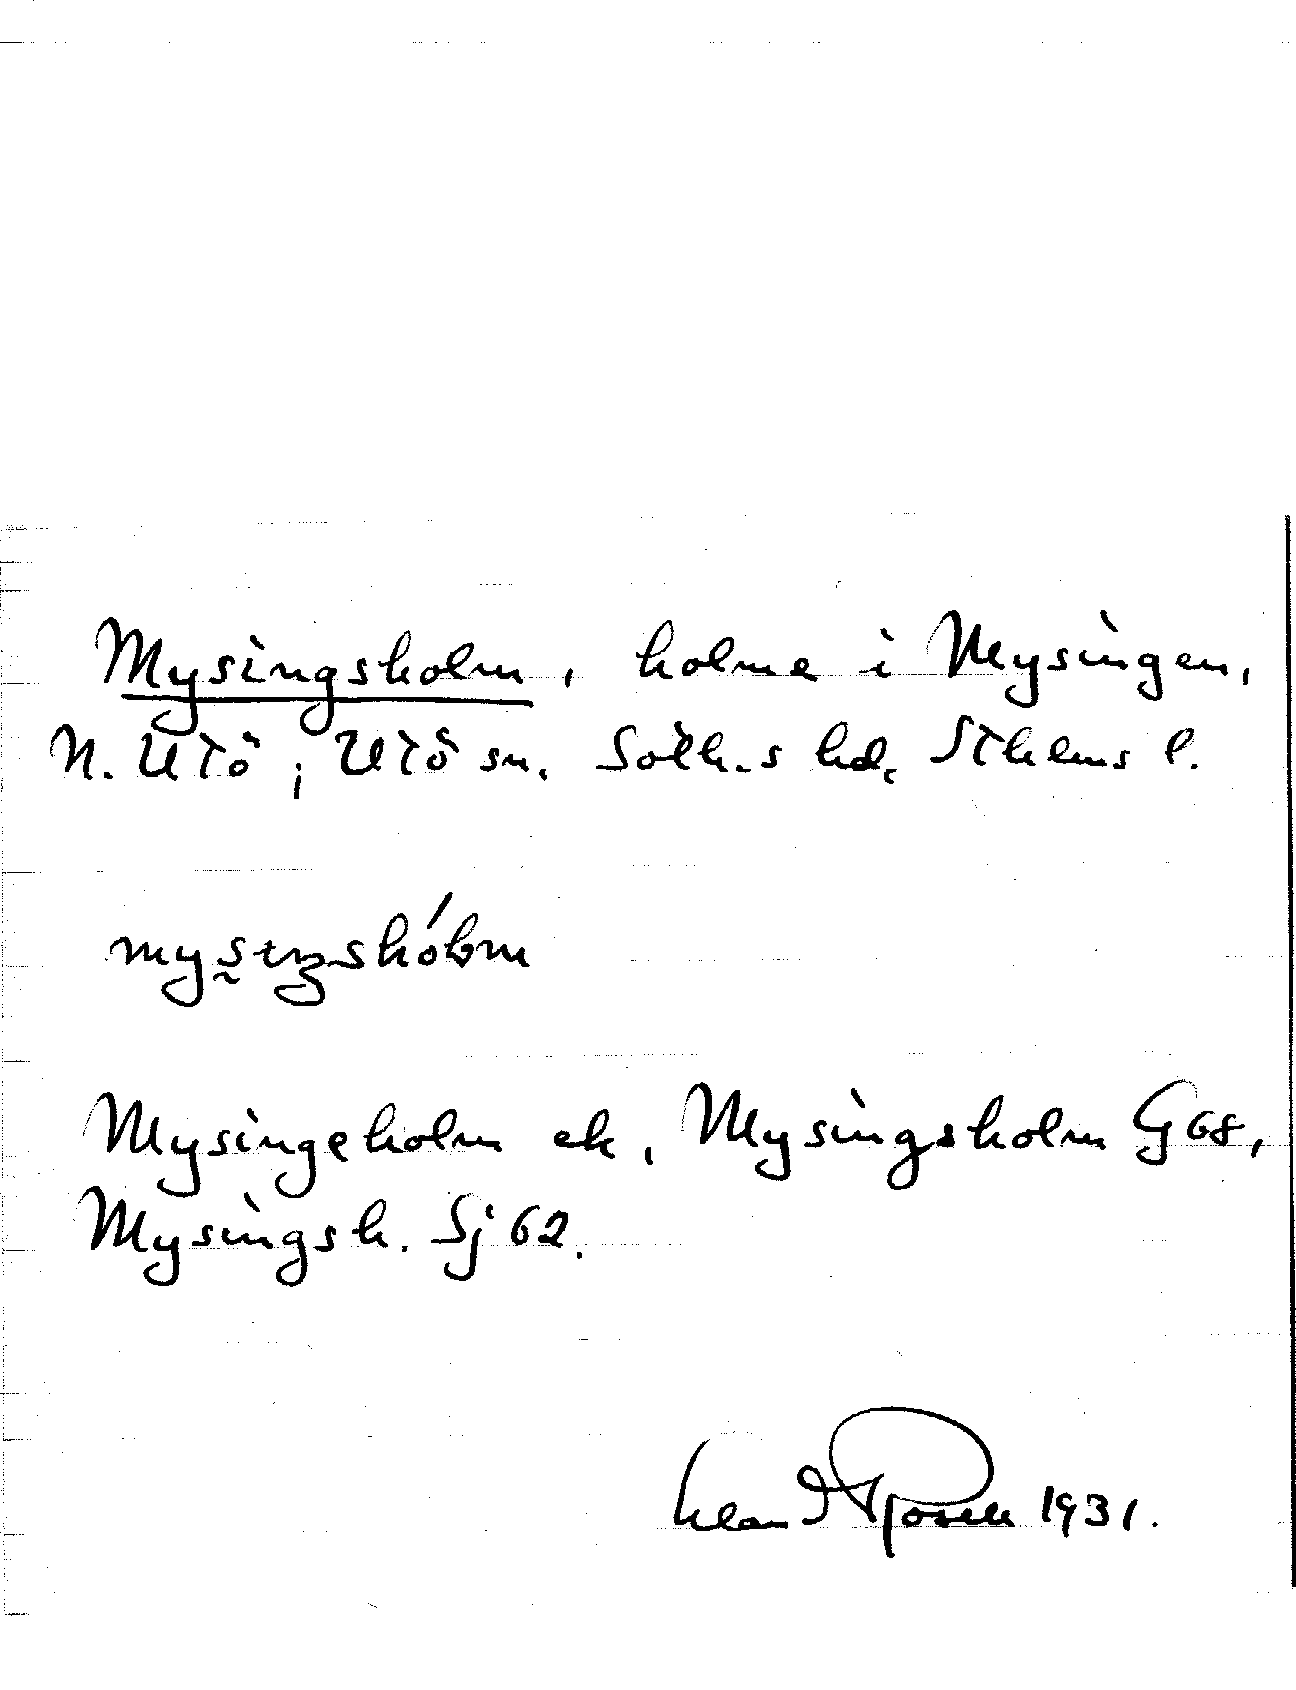 Mysingsholm, holme i Mysingen,
N. Utö, Utö sn. Soth.s hd, Sthlms l.
Mysingeholm ek, Mysingsholm G68,
Mysingsh. Sj 62.
1931.